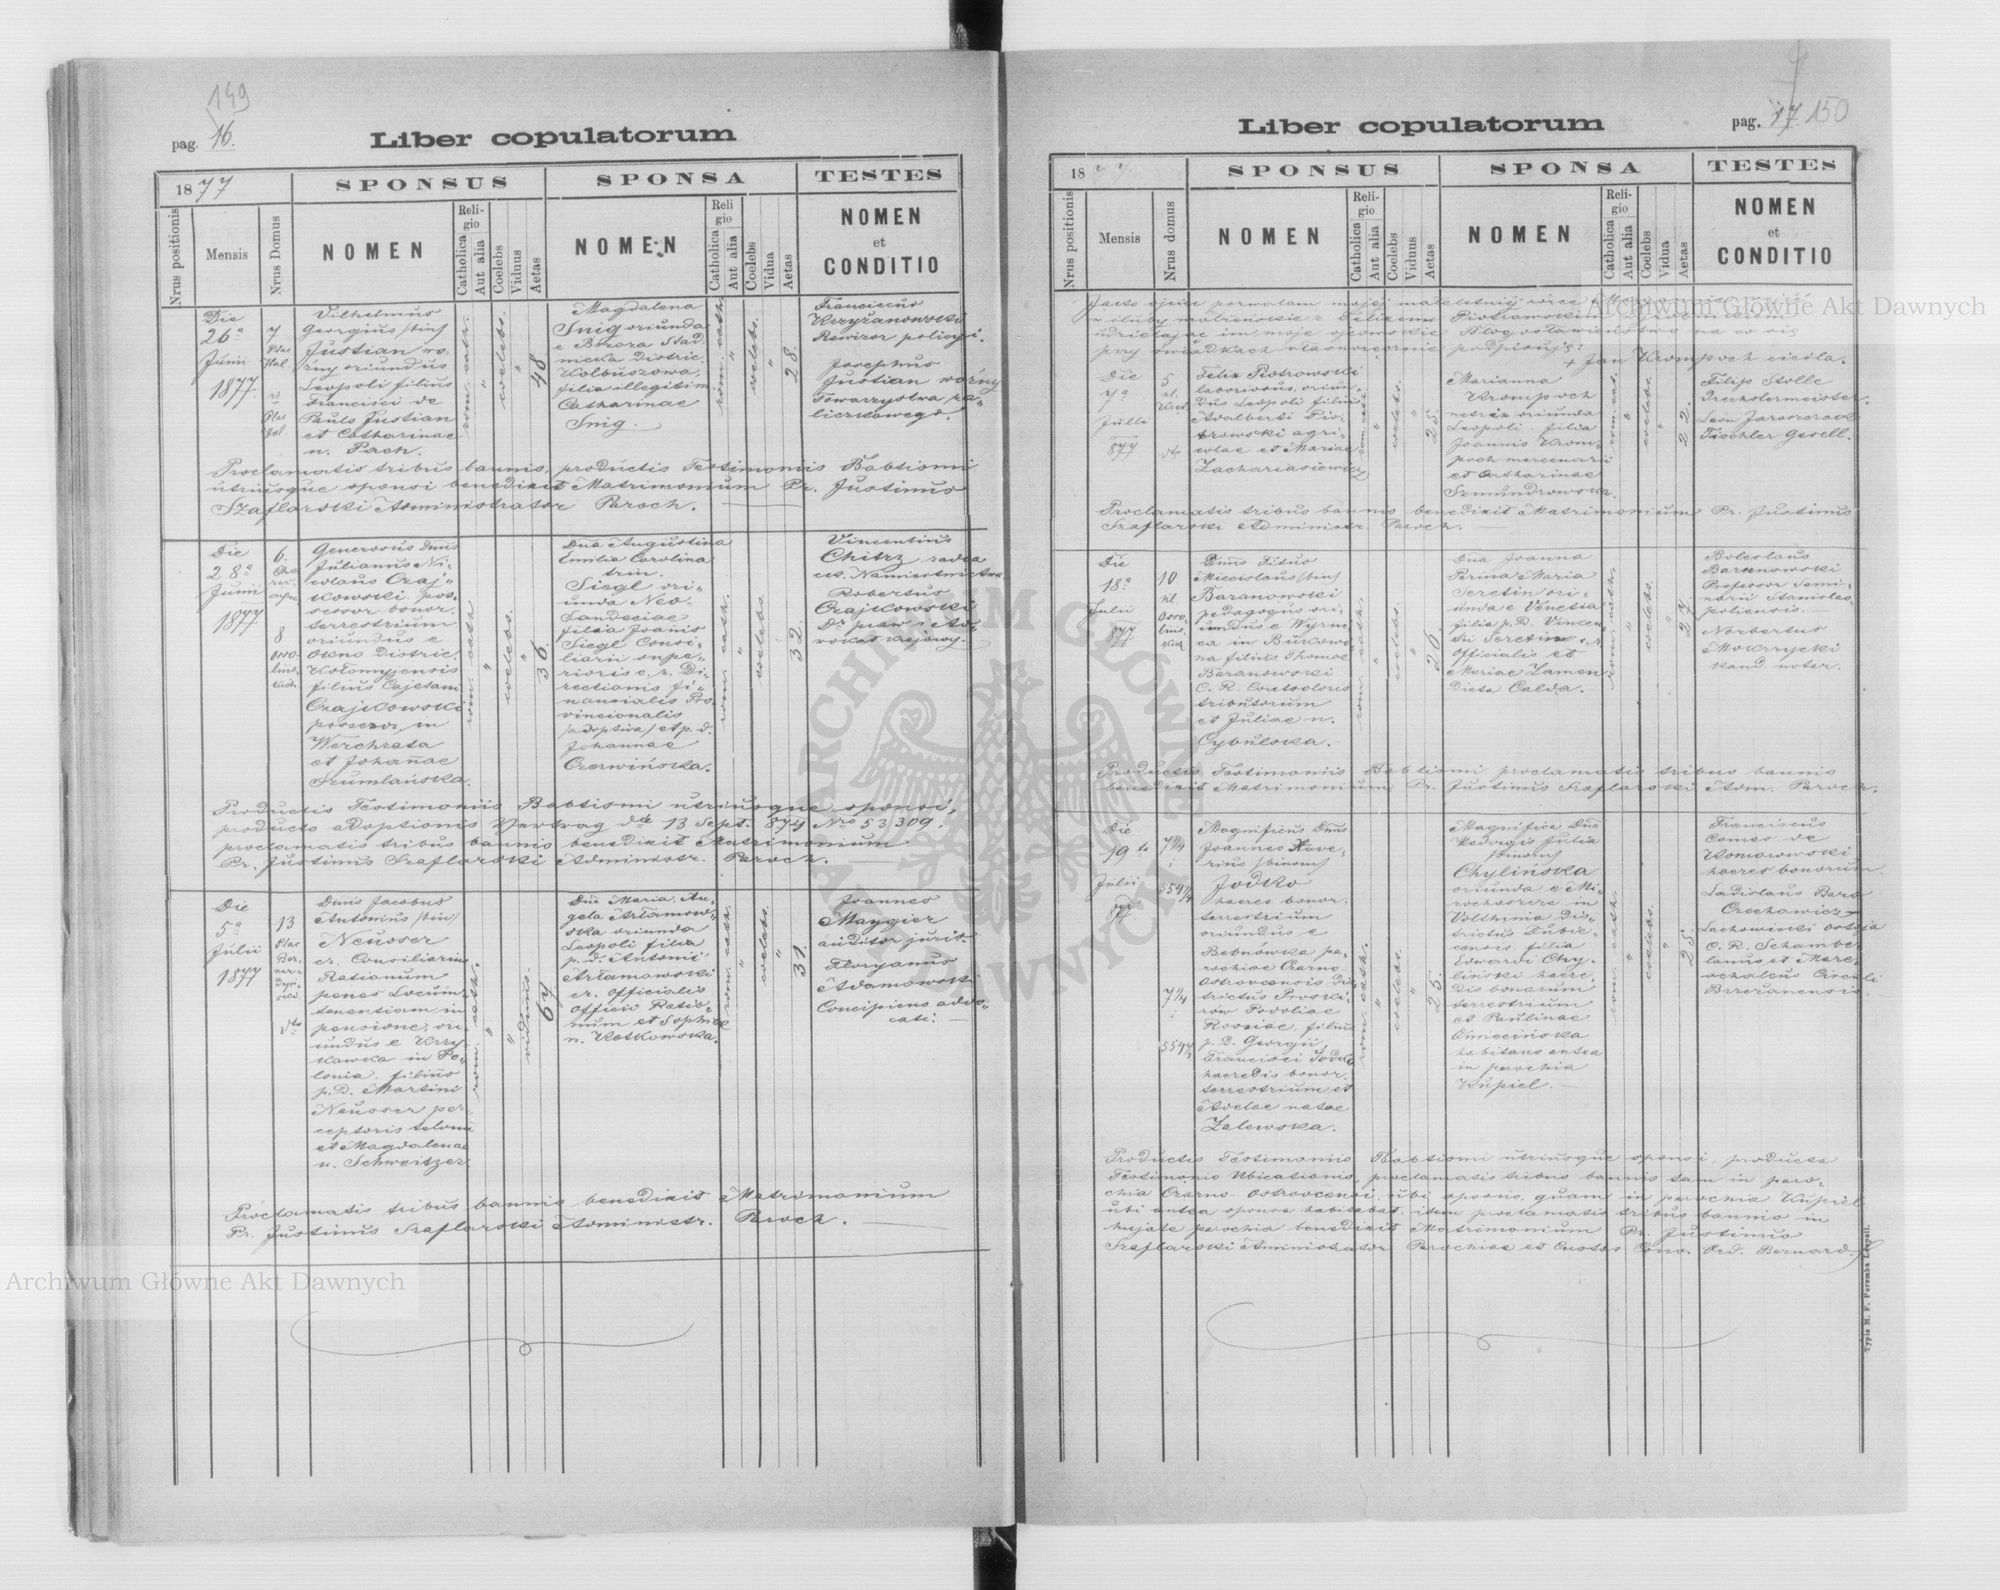 149
pag. 16.
Liber copulatorum
1877
SPONSUS
SPONSA
TESTES
Nrus positionis
Mensis
Nrus Domus
NOMEN
Religio
Catholica
Aut alia
Coelebs
Viduus
Aetas
NOMEN
Religio
Catholica
Aut alia
Coelebs
Vidua
Aetas
NOMEN
et
CONDITIO
Die
26a
Junii
1877.
7
Vilhelmus
Georgius /bin/
Justian wo-
źny oriundus
Leopoli filius
Francisci de
Paulo Justian
et Catharinae
n. Pach.
rom. cath.
"
coelebs.
"
48
Magdalena
Snig oriunda
e Brzoza Stad-
nicka distric.
Kolbuszowa,
filia illegitim.
Catharinae
Snig.
rom. cath.
"
coelebs.
"
28.
Franciscus
Krzyżanowski
Rewizor policyi.
Josephus
Justian woźny
Towarzystwa za-
liczkowego.
Proclamatis tribus bannis, productis Testimoniis Babtismi
utriusque sponsi benedixit Matrimonium Pr. Justinus
Szaflarski Administrator Paroch.
Die
28a
Junii
1877
6.
8
Generosus Dnus
Julianus Ni-
colaus Czaj-
kowski pos-
sessor bonor.
terrestrium
oriundus e
Okno distric.
Kołomyjensis
filius Cajetani
Czajkowski
possessor in
Werchrata
et Johannae
Szumlańska.
rom. cath.
"
coelebs.
"
36.
Dna Augustina
Emilia Carolina
trin.
Siegl ori-
unda Neo-
Sandeciae
filia Joannis
Siegl Consi-
liarii supe-
rioris c. r. Di-
rectionis fi-
nancialis Pro-
vincionalis
/adoptiva/ et p. d.
Johannae
Czerwińska.
rom. cath.
"
coelebs.
32.
Vincentius
Chitrz radca
ces. Namiestnictwa
Robertus
Czajkowski
Dr praw i Ad-
wokat krajowy.
Productis Testimoniis Babtismi utriusque sponsi,
producto adoptionis Vertrag dte 13 Sept. 874 Nro 53309.
proclamatis tribus bannis benedixit Matrimonium
Pr. Justinus Szaflarski Administr. Paroch.
Die
5a
Julii
1877
13
Dnus Jacobus
Antonius /bin/
Neusser
cr. Consiliarius
Rationum
penes Locum-
tenentiam in
pensione, ori-
undus e Krzy-
kawka in Po-
lonia. filius
p. D. Martini
Neusser per-
ceptoris telonii
et Magdalenae
n. Schweitzer.
rom. cath.
"
"
viduus.
67
Dna Maria An-
gela Artamow-
ska oriunda
Leopoli filia
p. d. Antonii
Artamowski
cr. officialis
officii Ratio-
num et Sophiae
n. Kotkowska.
rom. cath.
"
coelebs.
"
31.
Joannes
Maygier
auditor jurist.
Floryanus
Adamowski
Concipiens advo-
cati.
Proclamatis tribus bannis benedixit Matrimonium
Pr. Justinus Szaflarski Administr. Paroch.
Liber copulatorum
pag. 17. 150
1877
SPONSUS
SPONSA
TESTES
Nrus positionis
Mensis
Nrus domus
NOMEN
Religio
Catholica
Aut alia
Coelebs
Viduus
Aetas
NOMEN
Religio
Catholica
Aut alia
Coelebs
Vidua
Aetas
NOMEN
et
CONDITIO
Jako ojciec pozwalam mojej małoletniej córce
w śluby małżeńskie z Felixem Piotrowskim
udzielając im moje ojcowskie Błogosławieństwo na co się
przy świadkach własnoręcznie podpisuję:
+ Jan Krompoch cieśla.
Die
7a
Julii
877
5
Felix Piotrowski
laboriosus, oriun-
dus Leopoli filius
Adalberti Pio-
trowski agri-
colae et Mariae
Zachariasiewicz
rom. cath.
"
coelebs.
"
25.
Marianna
Krompoch
netrix oriunda
Leopoli. filia
Joannis Krom-
poch mercenarii
et Catharinae
Szmundrowska.
rom. cat.
"
coelebs.
"
22.
Filip Stolle
Drechslermeister.
Leon Jaroszczak
Tischler Gesell.
Proclamatis tribus bannis benedixit Matrimonium Pr. Justinus
Szaflarski Administr. Paroch.
Die
18a
Julii
877
10
Dnus Titus
Miecislaus /bin/
Baranowski
pedagogus ori-
undus e Wyzni-
ca in Bukowi-
na filius Thomae
Baranowski
C. R. Controlors
tributorum
et Juliae n.
Cybulska.
rom. cath.
"
coelebs.
"
26.
Dna Joanna
Perina Maria
Seretin ori-
unda e Venetia
filia p. D. Vincen-
tii Seretin c. r.
officialis et
Mariae Zamen
dicta Calda.
rom. cath.
"
coelebs.
"
27.
Boleslaus
Baranowski
Professor Semi-
narii Stanislao-
poliensis.
Norbertus
Mokrzycki
kand. notar.
Productis Testimoniis Babtismi, proclamatis tribus bannis
benedixit Matrimonium Pr. Justinus Szaflarski Adm. Paroch.
Die
19 te
Julii
877
7¼
554¼
Magnificus Dnus
Joannes Xave-
rius /binom/
Jodko
haeres bonor.
terrestrium
oriundus e
Bebnówka pa-
rochiae Czarno-
Ostrovcensis Dis-
trictus Proski-
rów Podoliae
Rossiae, filius
p. D. Georgii
Francisci Jodko
haeredis bonor.
terrestrium et
Adelae natae
Zalewska.
rom. cath.
"
coelebs.
"
25.
Magnifica Dna
Hedvigis Julia
/binom/
Chylińska
oriunda e Mi-
rochoszcze in
Volthinia Dis-
trictus Dubie-
censis. filia
Edwardi Chy-
liński haere-
dis bonarum
terrestrium
et Paulinae
Omiecińska
habitans antea
in parochia
Kupiel.
rom. cath.
"
coelebs.
"
25.
Franciscus
Comes de
Komorowski
haeres bonorum.
Ladislaus Baro
Czechowicz
Lachowicki Ostoja
C. R. Schambe-
lanus et Mare-
schalcus Circuli
Brzeżanensis.
Productis Testimoniis Babtismi utriusque sponsi, producto
Testimonio Ubicationis, proclamatis tribus bannis tam in paro-
chia Czarno-Ostrovcensi, ubi sponsus, quam in parochia Kupiel
ubi antea sponsa habitabat, item proclamatis tribus bannis in
hujate parochia benedixit Matrimonium Pr. Justinus
Szaflarski Aministrator Parochiae et Custos Conv. Ord. Bernard.
Typis M. F. Poremba Leopol.
Archiwum Główne Akt Dawnych
Archiwum Główne Akt Dawnych
ARCHIWUM GŁÓWNE AKT DAWNYCH